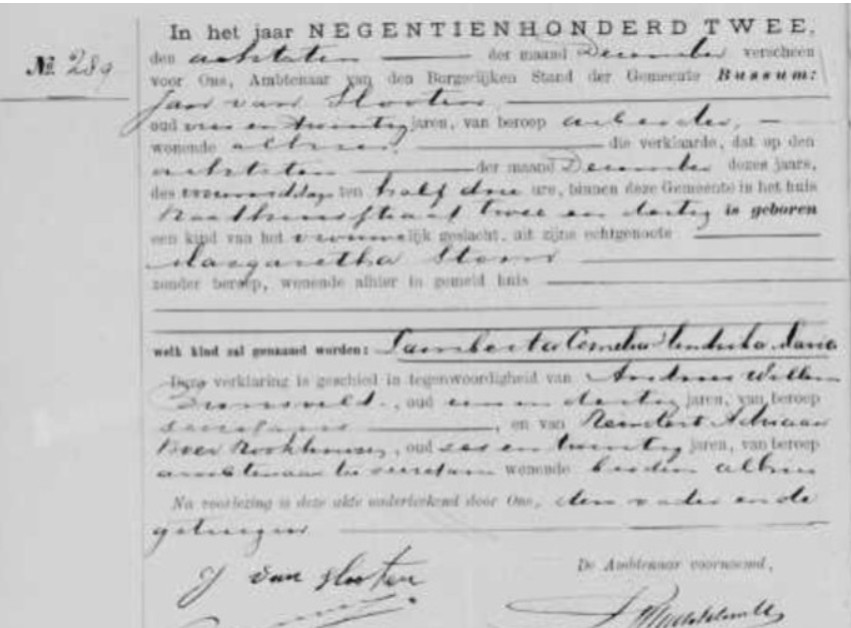 In het jaar NEGENTIENHONDERD TWEE,
№ 289
den achtsten der maand December verscheen
voor Ons, Ambtenaar van den Burgerlijken Stand der Gemeente Bussum:
Jan van Slooten
oud en twintig jaren, van beroep arbeider,
wonende alhier, die verklaarde, dat op den
achtsten der maand December dezes jaars,
des voormiddags ten half drie ure, binnen deze Gemeente in het huis
twee en dertig is geboren
een kind van het vrouwelijk geslacht, uit zijne echtgenoote
Margaretha
zonder beroep, wonende alhier in gemeld huis
welk kind zal genaamd worden: Lamberta Cornelia Hendrika Maria
Deze verklaring is geschied in tegenwoordigheid van Andries Willem
, oud en dertig jaren, van beroep
secretaris, en van Reindert Adriaan
, oud zes en twintig jaren, van beroep
ambtenaar ter secretarie wonende beiden alhier
Na voorlezing is deze akte onderteekend door Ons, den vader en de
getuigen
J van Slooten
De Ambtenaar voornoemd,